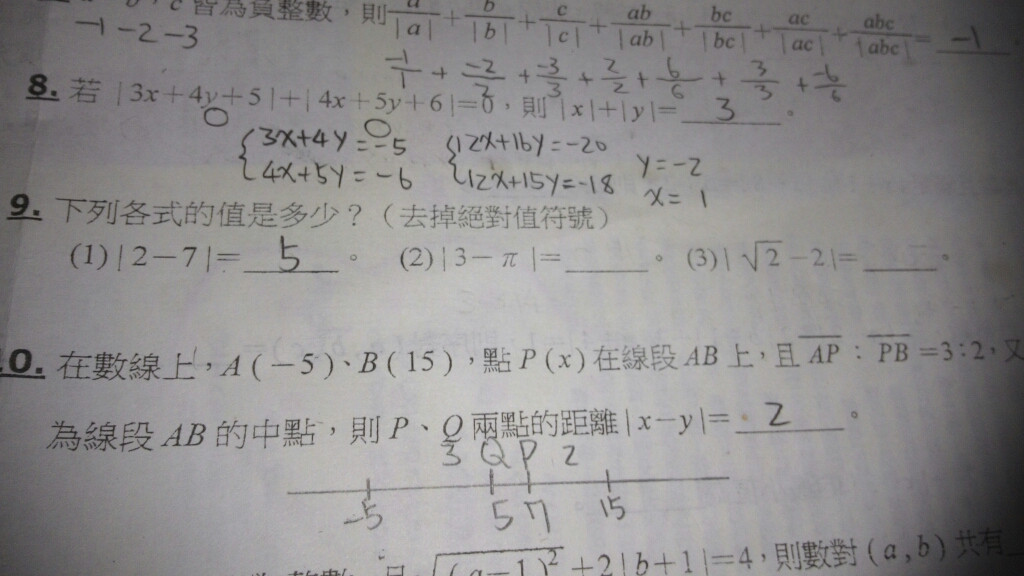 皆為負整數,則 a/|a| + b/|b| + c/|c| + ab/|ab| + bc/|bc| + ac/|ac| + abc/|abc| = -1
-1 -2 -3
-1/1 + -2/2 + -3/3 + 2/2 + 6/6 + 3/3 + -6/6
8. 若 |3x+4y+5|+|4x+5y+6|=0,則 |x|+|y|= 3 。
0 0
{3x+4y=-5 {12x+16y=-20
{4x+5y=-6 {12x+15y=-18 y=-2
x=1
9. 下列各式的值是多少?(去掉絕對值符號)
(1)|2-7|= 5 。 (2)|3-π|=____。 (3)|√2-2|=____。
0. 在數線上,A(-5)、B(15),點 P(x) 在線段 AB 上,且 AP:PB=3:2,又
為線段 AB 的中點,則 P、Q 兩點的距離 |x-y|= 2 。
3 Q P 2
-5 5 7 15
√(a-1)² +2|b+1|=4,則數對 (a,b) 共有